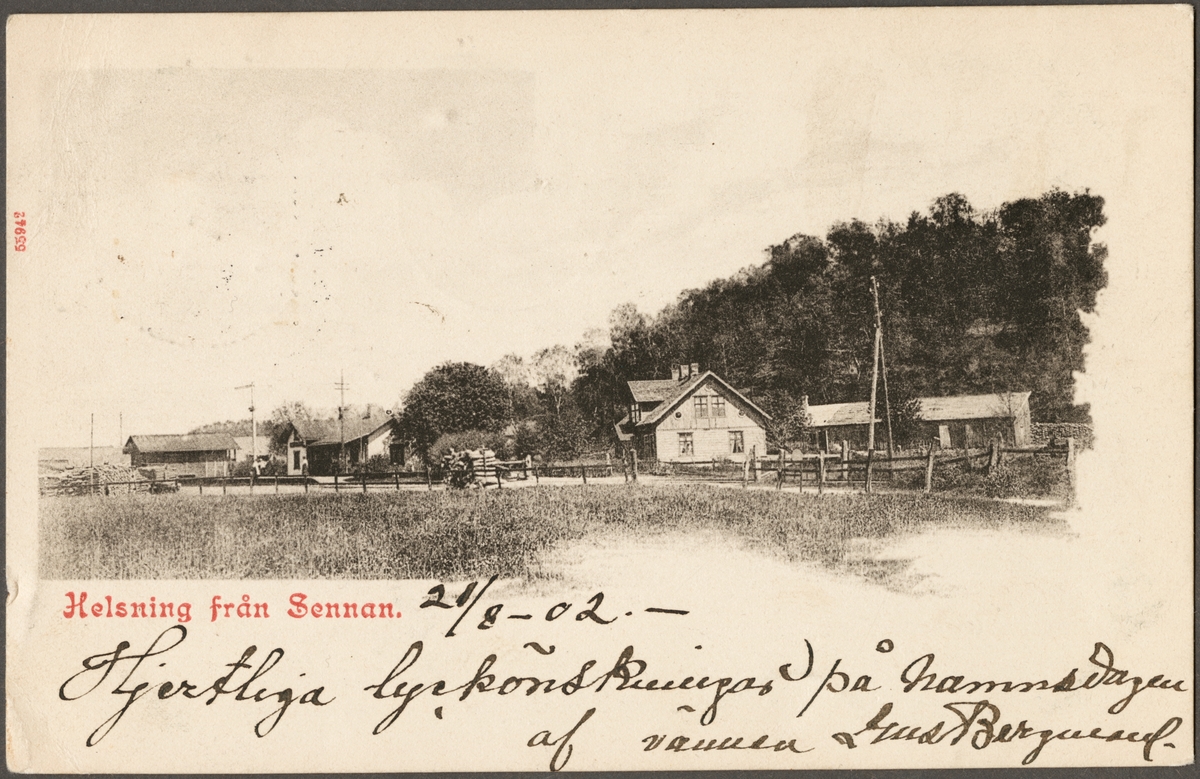 55942
Helsning från Sennan.
21/8-02.-
Hjertliga lyckönskningar på Namnsdagen
af vännen Gus Bergman.